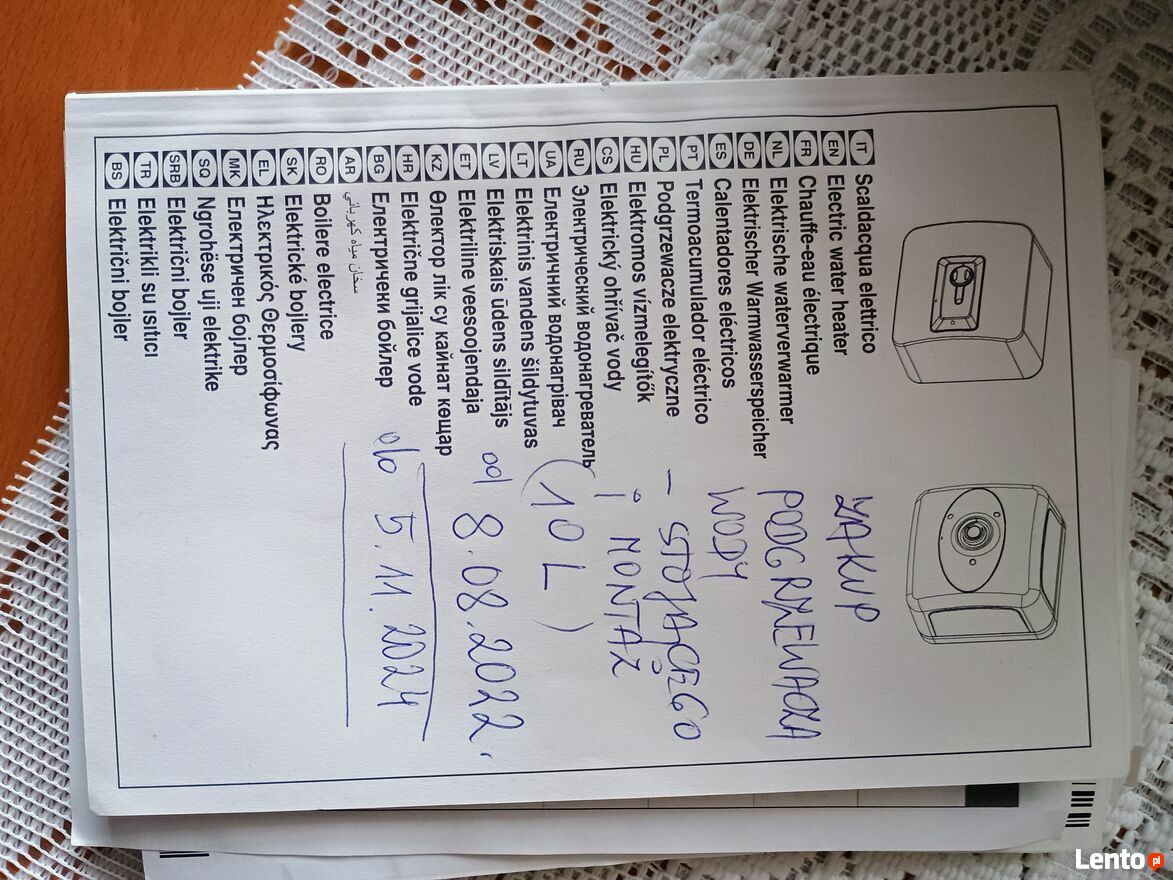 IT Scaldacqua elettrico
EN Electric water heater
FR Chauffe-eau électrique
NL Elektrische waterverwarmer
DE Elektrischer Warmwasserspeicher
ES Calentadores eléctricos
PT Termoacumulador eléctrico
PL Podgrzewacze elektryczne
HU Elektromos vízmelegítők
CS Elektrický ohřívač vody
RU Электрический водонагреватель
UA Електричний водонагрівач
LT Elektrinis vandens šildytuvas
LV Elektriskais ūdens sildītājs
ET Elektriline veesoojendaja
KZ Өлектор лік су кайнат көщар
HR Električne grijalice vode
BG Електричени бойлер
AR سخان مياه كهربائي
RO Boilere electrice
SK Elektrické bojlery
EL Ηλεκτρικός Θερμοσίφωνας
MK Електричен бојлер
SQ Ngrohëse uji elektrike
SRB Električni bojler
TR Elektrikli su ısıtıcı
BS Električni bojler
ZAKUP
PODGRZEWACZA
WODY
- STOJĄCEGO
i MONTAŻ
(10 L)
od 8.08.2022.
do 5.11.2024
Lento.pl